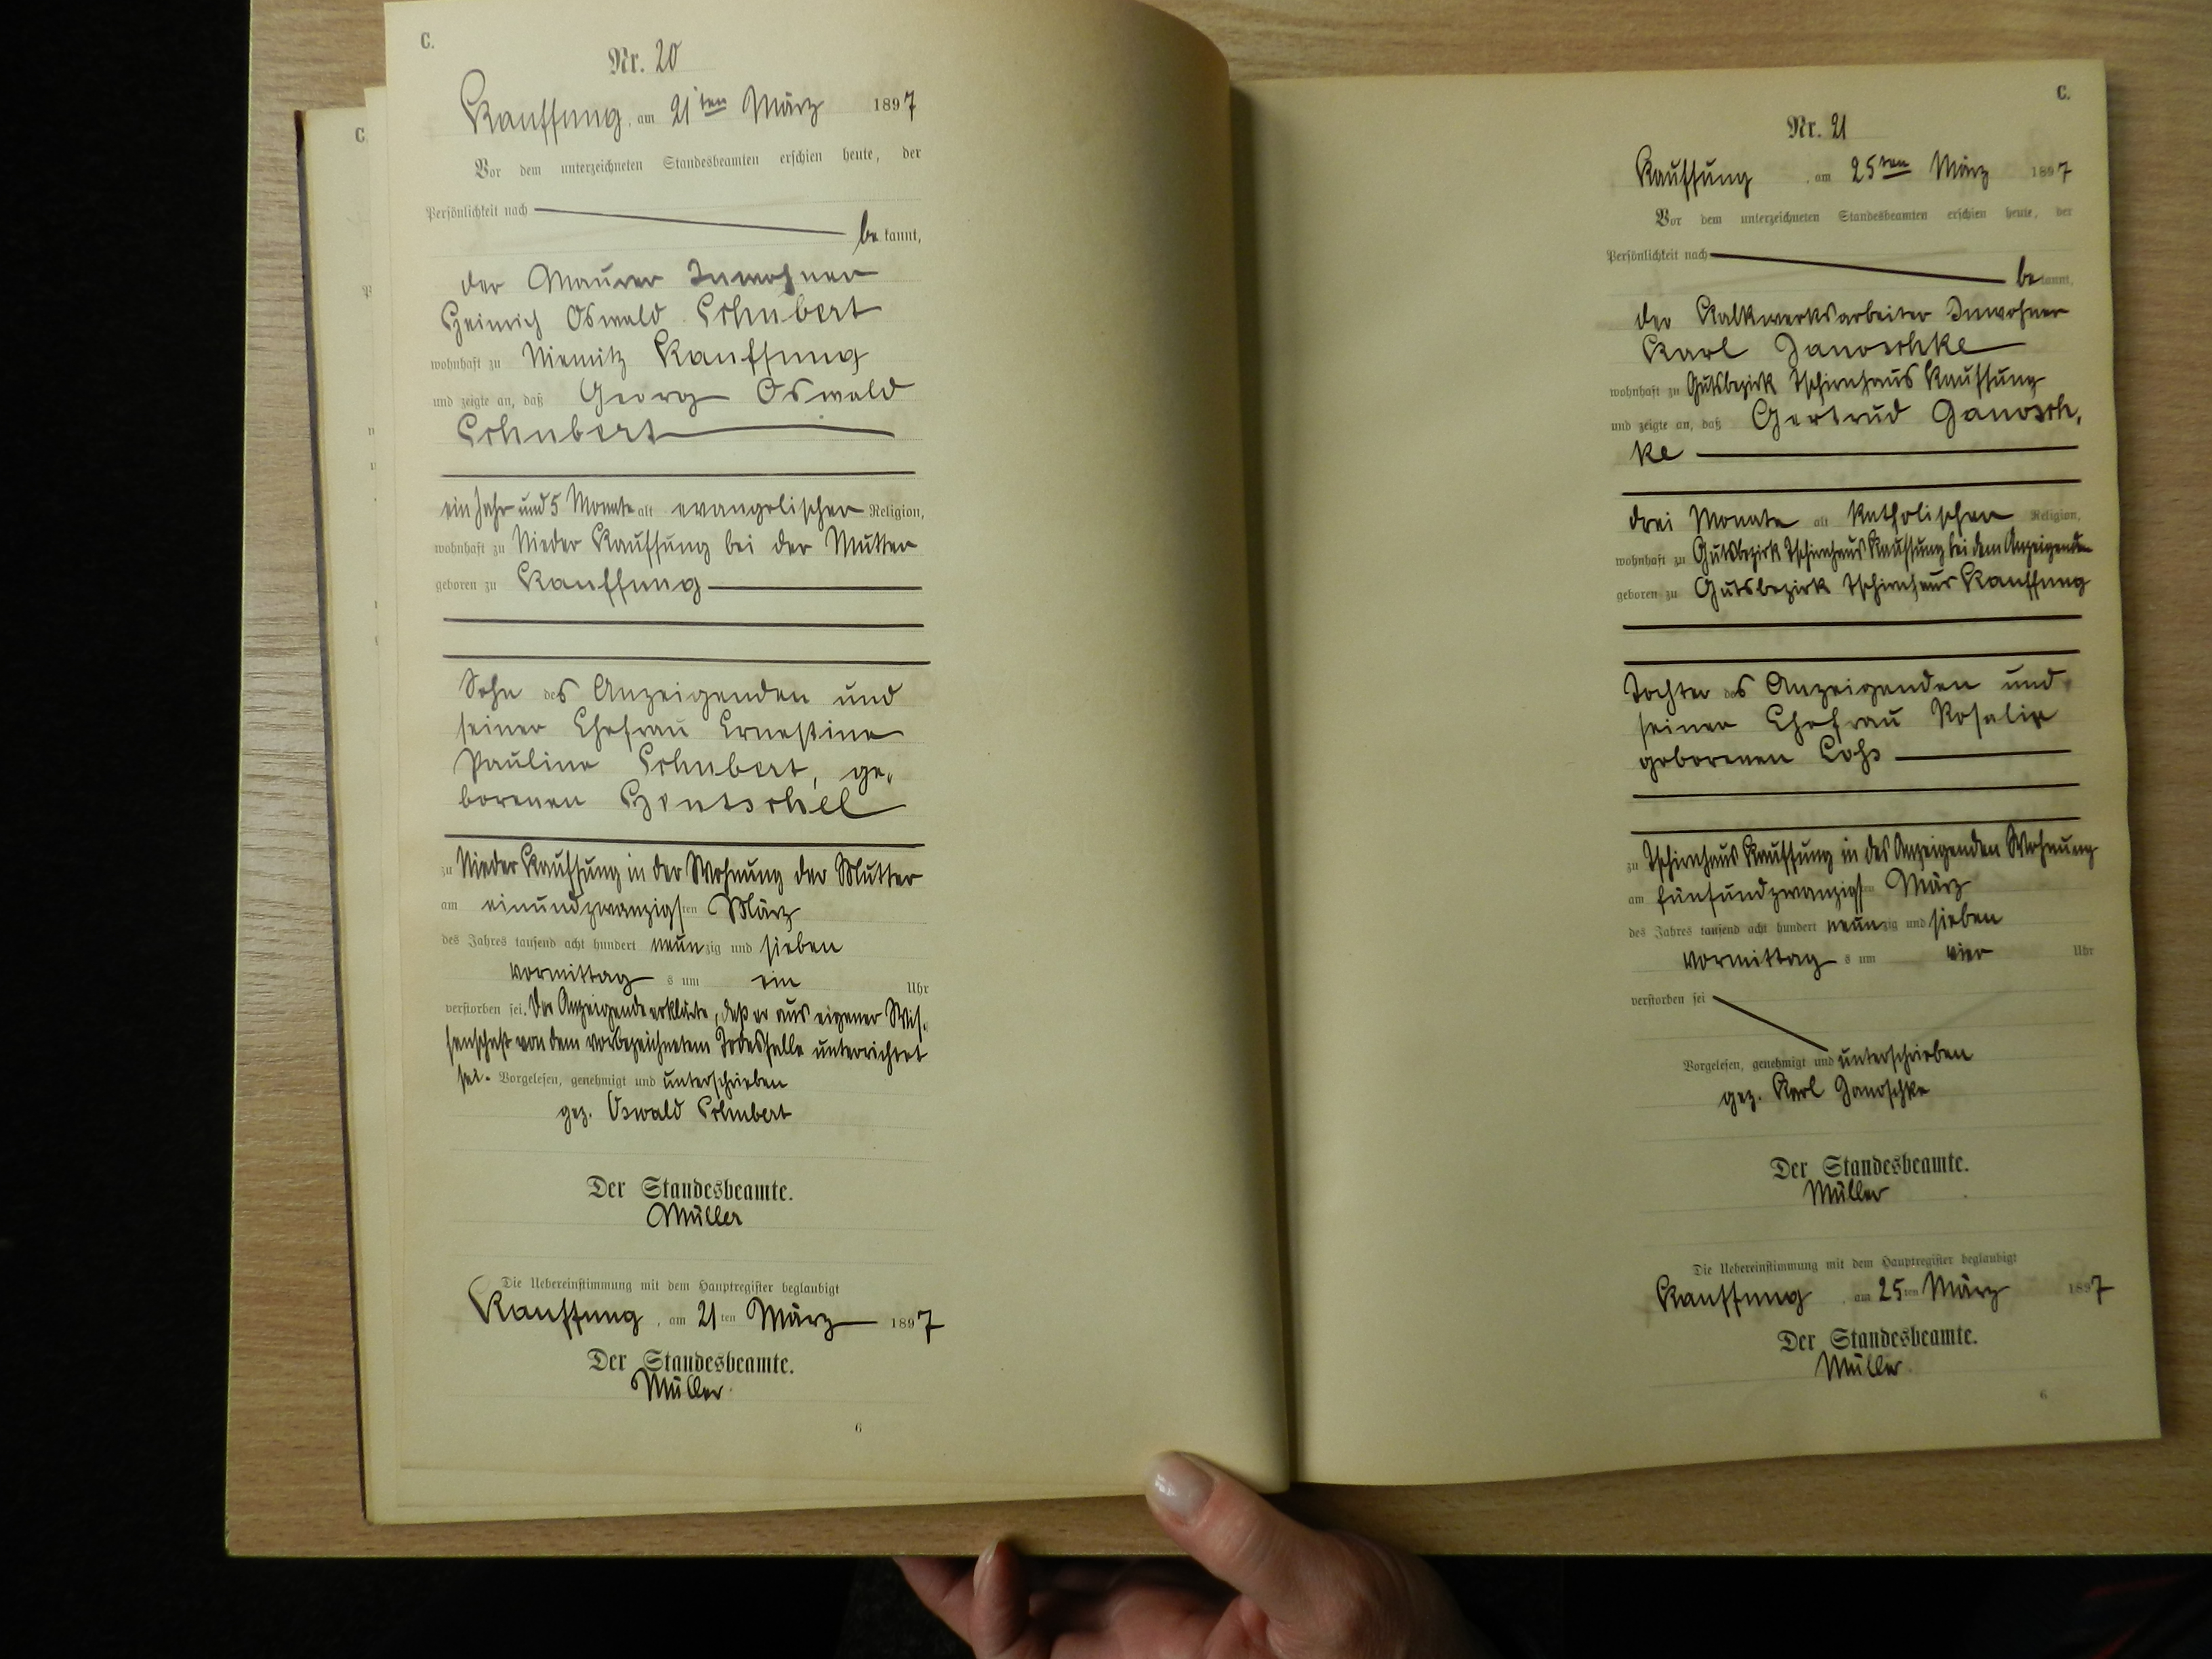 C.
Nr. 20
Kauffung, am 21ten März 1897
Vor dem unterzeichneten Standesbeamten erschien heute, der
Persönlichkeit nach
be kannt,
der Maurer Inwohner
Heinrich Oswald Schubert
wohnhaft zu Niemitz Kauffung
und zeigte an, daß Georg Oswald
Schubert
ein Jahr und 5 Monate alt evangelischer Religion,
wohnhaft zu Nieder Kauffung bei der Mutter
geboren zu Kauffung
Sohn des Anzeigenden und
seiner Ehefrau Ernestine
Pauline Schubert, ge-
borenen Hentschel
zu Nieder Kauffung in der Wohnung der Mutter
am einundzwanzigsten März
des Jahres tausend acht hundert neunzig und sieben
vormittags um ein Uhr
verstorben sei. Der Anzeigende erklärte, daß er aus eigener Wis-
senschaft von dem vorbezeichnetem Todesfalle unterrichtet
sei. Vorgelesen, genehmigt und unterschrieben
gez. Oswald Schubert
Der Standesbeamte.
Müller
Die Uebereinstimmung mit dem Hauptregister beglaubigt
Kauffung, am 21ten März 1897
Der Standesbeamte.
Müller.
6
C.
Nr. 21
Kauffung, am 25ten März 1897
Vor dem unterzeichneten Standesbeamten erschien heute, der
Persönlichkeit nach
be kannt,
der Kalkwerksarbeiter Inwohner
Karl Janoschke
wohnhaft zu Gutsbezirk Tschirnhaus Kauffung
und zeigte an, daß Gertrud Janosch-
ke
drei Monate alt katholischer Religion,
wohnhaft zu Gutsbezirk Tschirnhaus Kauffung bei dem Anzeigenden
geboren zu Gutsbezirk Tschirnhaus Kauffung
Tochter des Anzeigenden und
seiner Ehefrau Rosalie
geborenen
zu Tschirnhaus Kauffung in des Anzeigenden Wohnung
am fünfundzwanzigsten März
des Jahres tausend acht hundert neunzig und sieben
vormittags um vier Uhr
verstorben sei
Vorgelesen, genehmigt und unterschrieben
gez. Karl Janoschke
Der Standesbeamte.
Müller
Die Uebereinstimmung mit dem Hauptregister beglaubigt
Kauffung, am 25ten März 1897
Der Standesbeamte.
Müller.
6